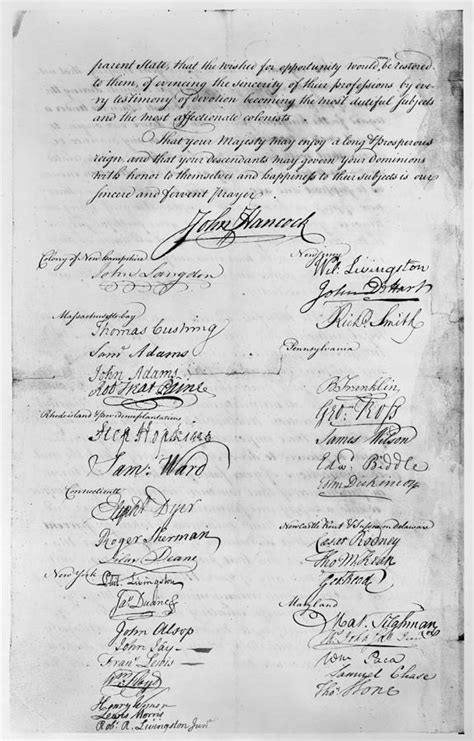 parent State, that the wished for opportunity would be restored
to them, of evincing the sincerity of their professions by eve
ry testimony of devotion becoming the most dutiful subjects
and the most affectionate colonists.
That your Majesty may enjoy a long & prosperous
reign, and that your descendants may govern your dominions
with honor to themselves and happiness to their subjects is our
sincere and fervent prayer.
John Hancock
Colony of New Hampshire
John Langdon
Massachusetts-bay
Thomas Cushing
Saml Adams
John Adams
Robt Treat Paine
Rhode island &
Step Hopkins
Sam: Ward
Connecticutt
Elipht Dyer
Roger Sherman
Silas Deane
New York
Phil. Livingston
Jas Duane
John Alsop
John Jay
Frans Lewis
Wm Floyd
Henry Wisner
Lewis Morris
Robt R. Livingston Junr
New Jersey
Wil: Livingston
John D Hart
Richd Smith
Pennsylvania
B Franklin
Geo: Ross
James Wilson
Edwd Biddle
Newcastle Kent & Sussex on Delaware
Caesar Rodney
Tho M:Kean
Geo Read
Maryland
Mat. Tilghman
Wm Paca
Samuel Chase
Thos Stone